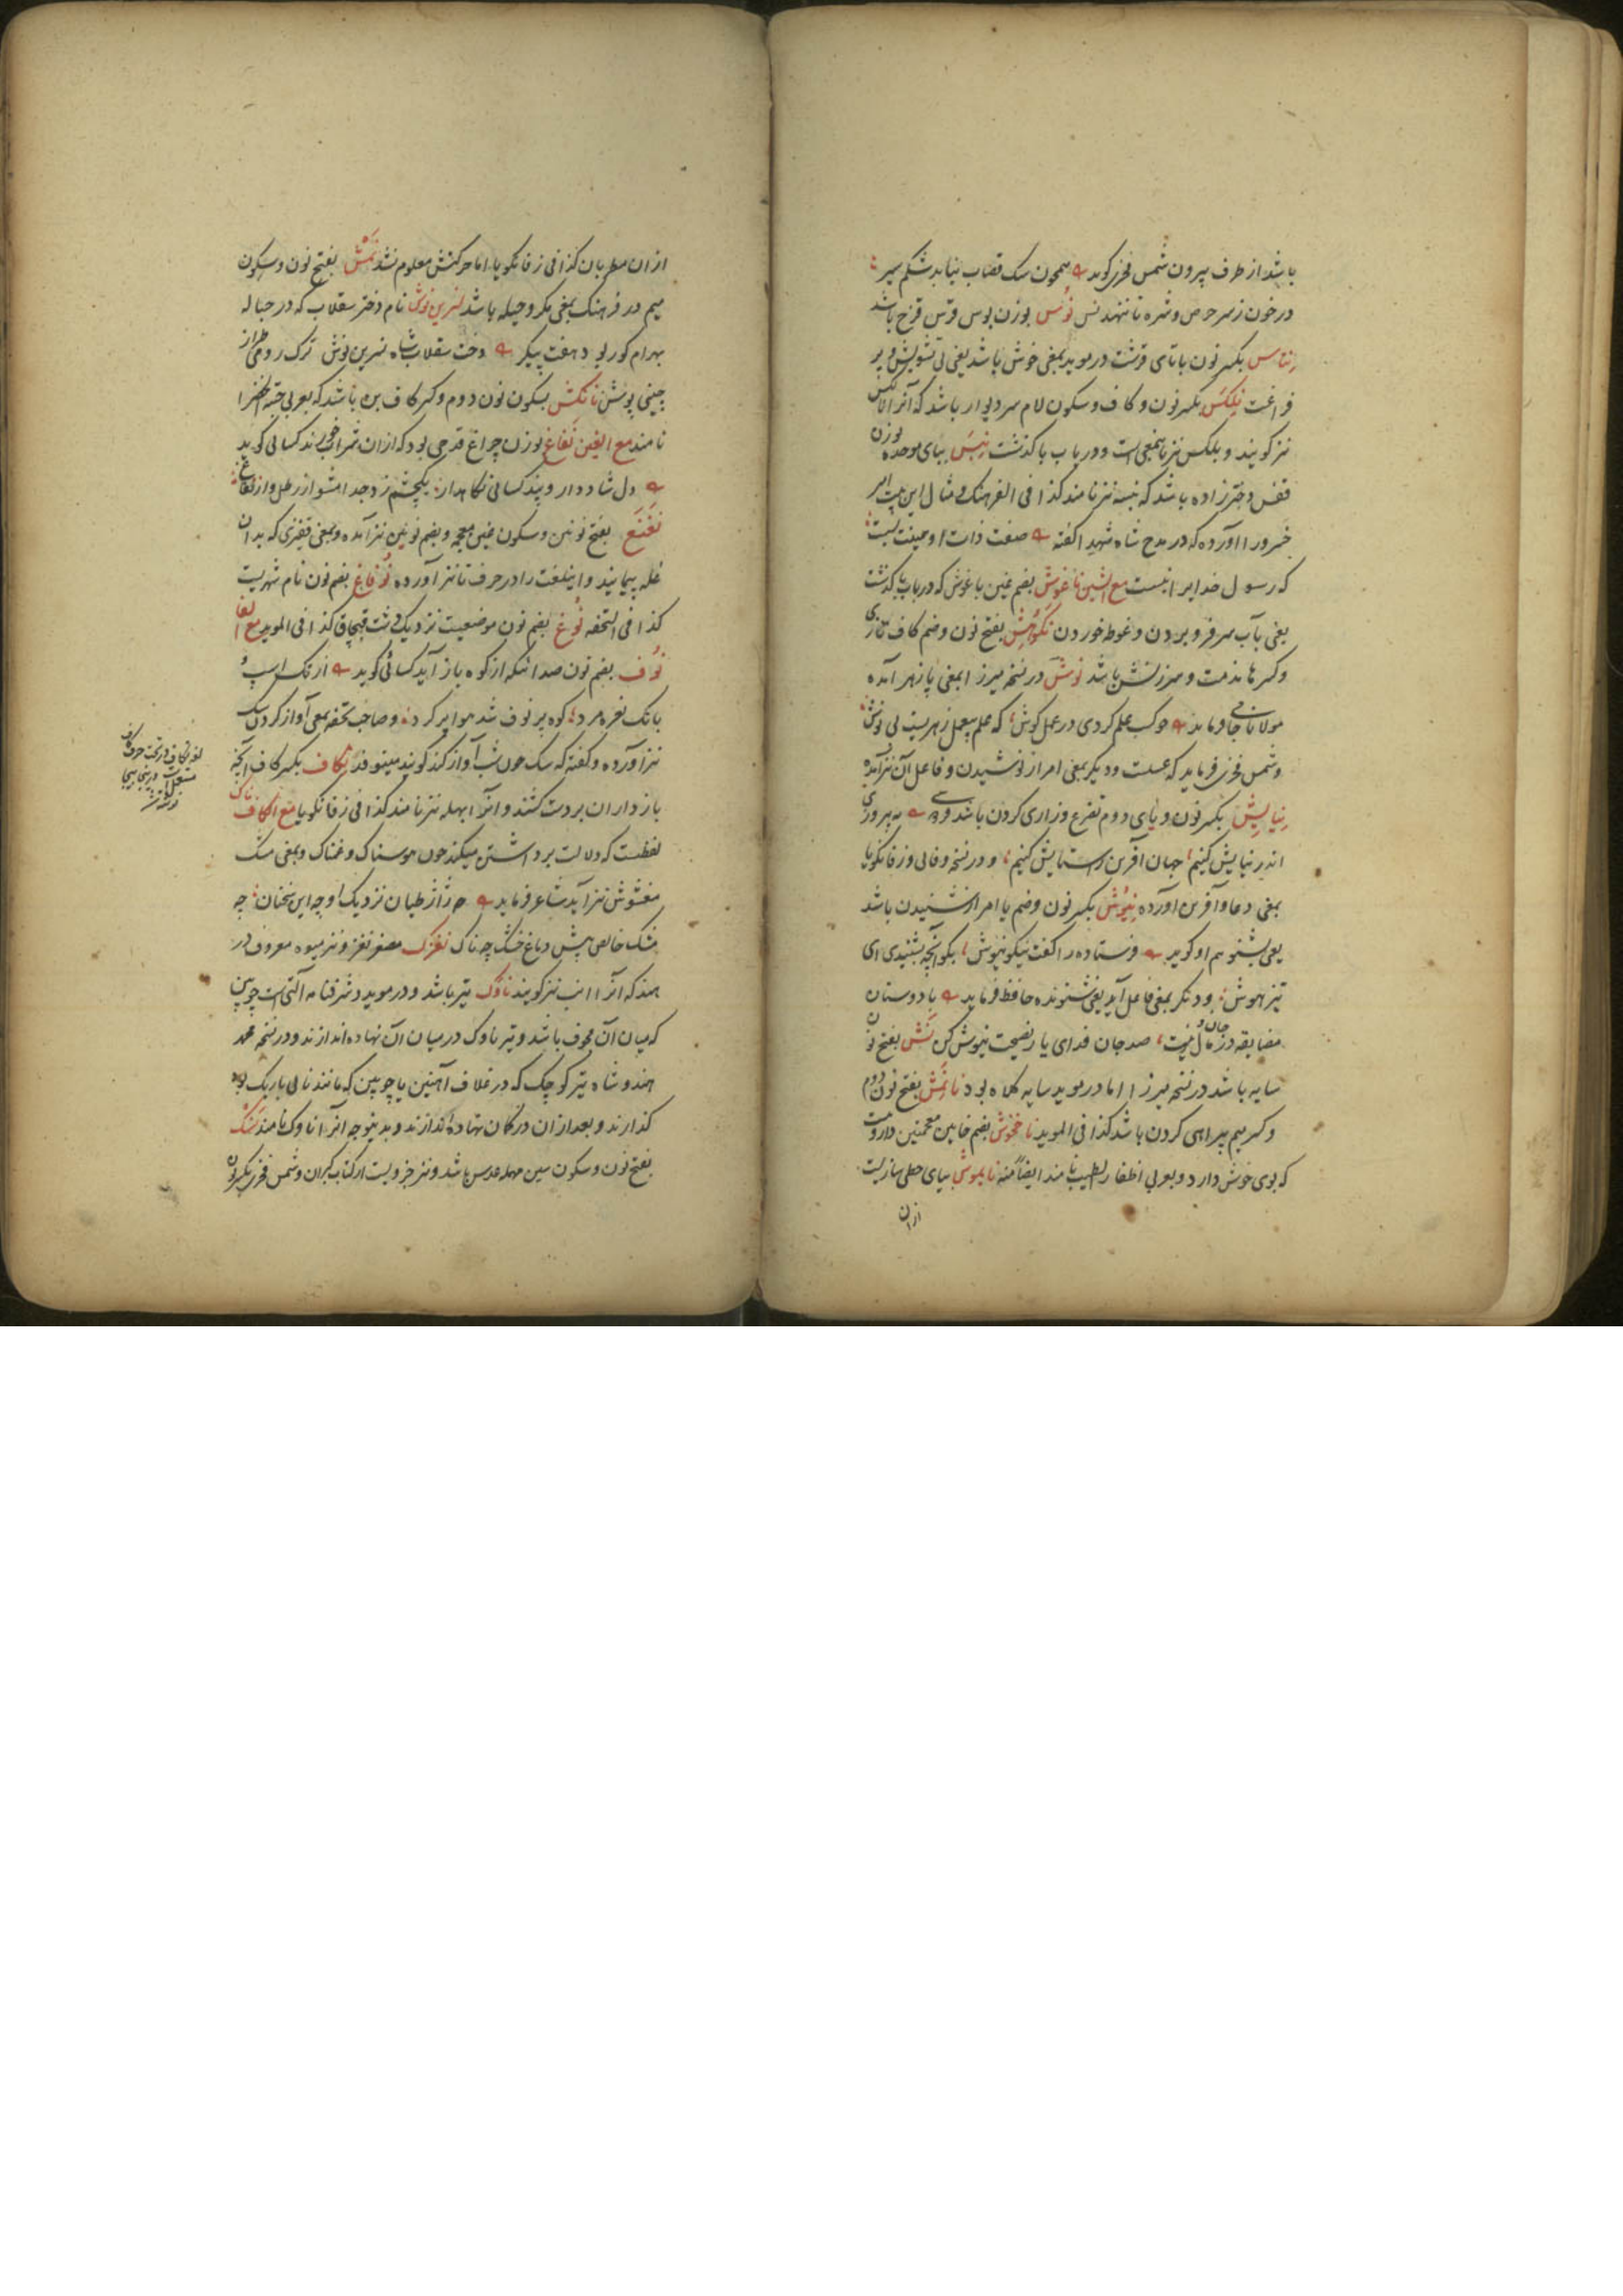 باشد از طرف بیرون شمس فخری کوید همچون سک قصاب نیابد شکم سیر
در خون ز سر حرص و شره تا ننهد نس نوس بوزن بوس قوس قزح باشد
نتاس بکسر نون با تای قرشت در موید بمعنی خوش باشد یعنی بی تشویش و پر
فراغت نلکس بکسر نون و کاف و سکون لام سر دیوار باشد که آنرا
نیز کویند و بلکس نیز باینمعنی است و در باب با کذشت نبس ببای موحده بوزن
قفس دختر زاده باشد که نبسه نیز نامند کذا فی الفرهنک و مثال این بیت امیر
خسرو را آورده که در مدح شاه شهید اکفته صفت ذات او همینت بست
که رسول خدایرا نبست مع الشین ناغوش بضم غین با غوش که در باب با کذشت
یعنی بآب سر فرو بردن و غوطه خوردن نکوهش بفتح نون و ضم کاف تازی
و کسر ها مذمت و سرزنش باشد نوش در نسخه میرزا بمعنی پازهر آمده
مولانا جامی فرماید چو کسب علم کردی در عمل کوش که علم بیعمل زهریست بی نوش
و شمس فخری فرماید که عسلست و دیکر بمعنی امر از نوشیدن و فاعل آن نیز آمده
نیایش بکسر نون و یای دوم تضرع و زاری کردن باشد به پیروزی
اندر نیایش کنیم جهان آفرین را ستایش کنیم و در نسخه وفائی و زفانکویا
بمعنی دعا و آفرین آورده نیوش بکسر نون و ضم یا امر از شنیدن باشد
یعنی بشنو هم او کوید فرستاده را کفت نیکو نیوش بکو آنچه بشنیدی ای
تیز هوش و دیکر بمعنی فاعل آید یعنی شنونده حافظ فرماید با دوستان
مضایقه در جان و مال نیست صد جان فدای یار نصیحت نیوش کن نش بفتح نون
سایه باشد در نسخه میرزا اما در موید سایه کلاه بود نانمش بفتح نون دوم
و کسر میم بیراهی کردن باشد کذا فی الموید ناخخوش بضم خایین معجمتین داروئیست
که بوی خوش دارد و بعربی اظفار الطیب نامند ایضاً منه نایموش بیای حطی سازیست
ازان
ازان مطربان کذا فی زفانکویا اما حرکتش معلوم نشد نمش بفتح نون و سکون
میم در فرهنک بمعنی مکر و حیله باشد نسرین نوش نام دختر سقلاب که در حباله
بهرام کور بود هفت پیکر دخت سقلاب شاه نسرین نوش ترک رومی طراز
چینی پوش نانکش بسکون نون دوم و کسر کاف بن باشد که بعربی حبة الخضرا
نامند مع الغین نغاغ بوزن چراغ قدحی بود که ازان شراب خورند کسائی کوید
دل شاد دار و پند کسائی نکاهدار یکچشم زد جدا مشو از رطل و از نغاغ
نغنغ بفتح نونین و سکون غین معجمه و بضم نونین نیز آمده و بمعنی قفیزی که بدان
غله پیمایند و اینلغت را در حرف تا نیز آورده نوفاغ بضم نون نام شهریست
کذا فی التحفه نوغ بضم نون موضعیست نزدیک دشت قبچاق کذا فی الموید مع الفا
نوف بضم نون صدائیکه از کوه باز آید کسائی کوید از تک اسپ و
بانک نعره مرد کوه پر نوف شد هوا پر کرد و صاحب تحفه بمعنی آواز کردن سک
نیز آورده و کفته که سک چون شب آواز کند کویند مینوفد نکاف بکسر کاف آنچه
بازداران بر دست کشند و انرا بهله نیز نامند کذا فی زفانکویا مع الکاف ناک
لفظیست که دلالت بر داشتن میکند چون هوسناک و غمناک و بمعنی مشک
مغشوش نیز آید شاعر فرماید چه ژاژ طیان نزدیک او چه این سخنان چه
مشک خالص پیش دماغ خشک چه ناک نغزک مصغر نغز و نیز میوه معروف در
هند که آنرا انب نیز کویند ناوک تیر باشد و در موید و شرفنامه آلتی است چوبین
که میان آن مجوف باشد و تیر ناوک در میان آن نهاده اندازند و در نسخه محمد
هندوشاه تیر کوچک که در غلاف آهنین یا چوبین که مانند نائی باریک بود
کذارند و بعد ازان در کمان نهاده اندازند و بدینوجه انرا ناوک نامند نسک
بفتح نون و سکون سین مهمله عدس باشد و نیز جزویست از کتاب کبران و شمس فخری بکسر نون